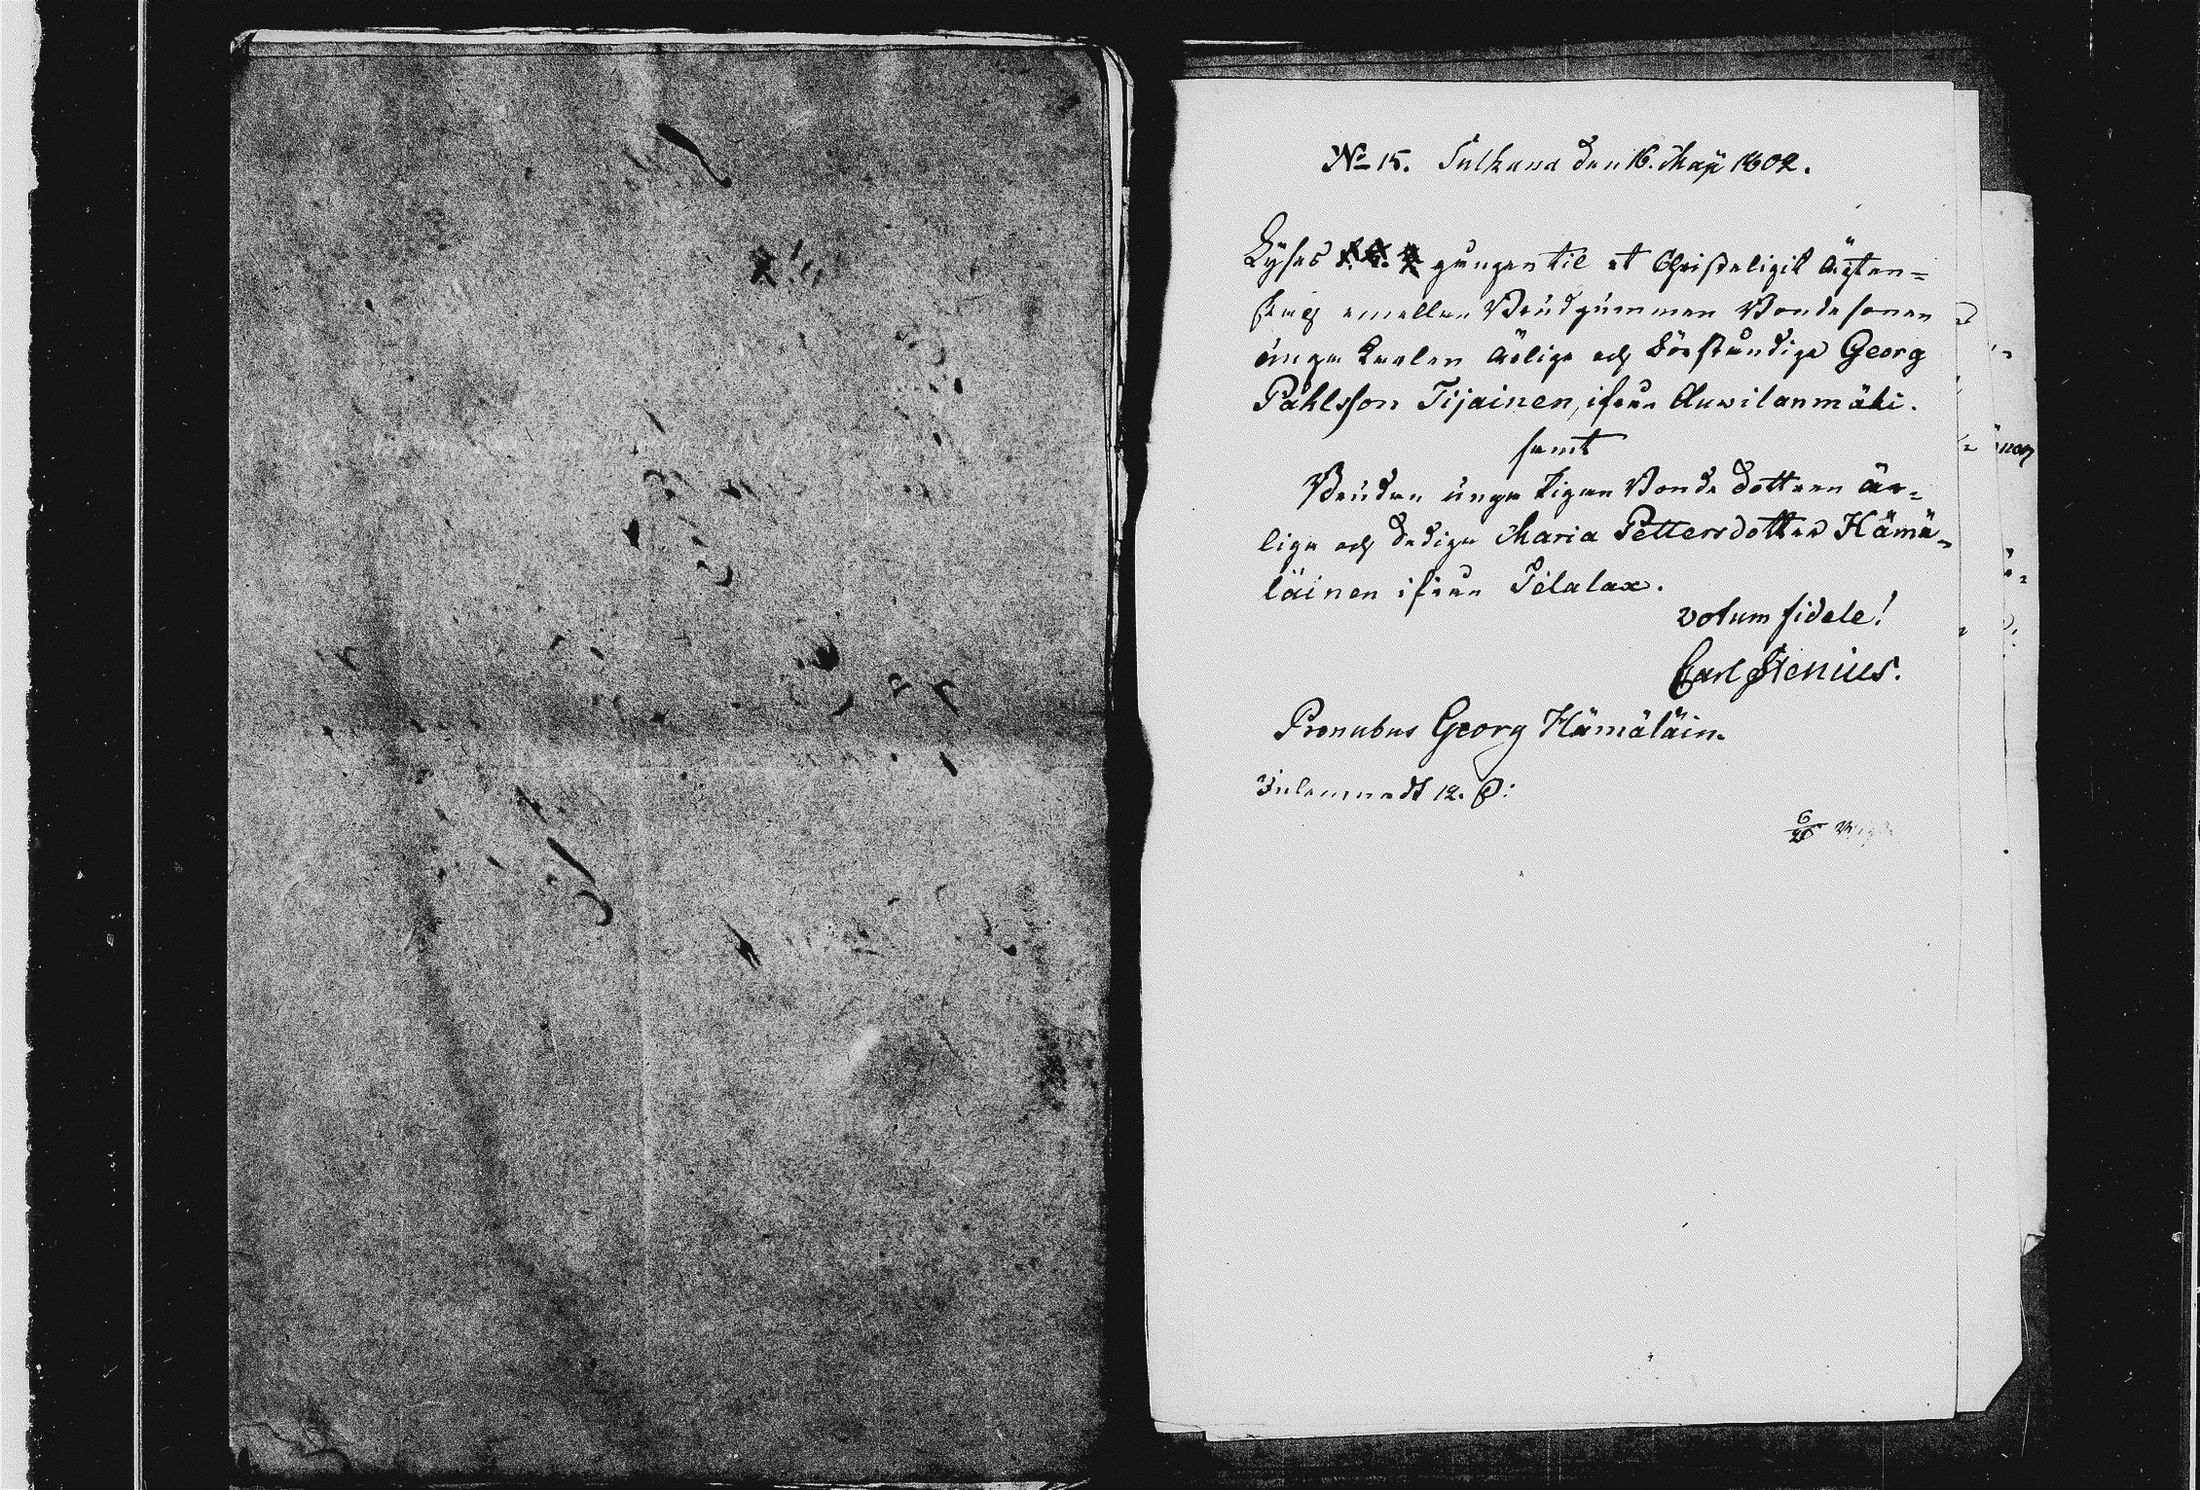 No 15. Sulkava den 16. Maji 1802.
Lyses gången til et Christeligit Ägten=
skap emellan Brudgummen Bondesonen
unga Karlen Ärlige och Förståndige Georg
Påhlsson Tijainen, ifrån Auwilanmäki.
samt
Bruden unga Pigan Bonde dottren Är=
liga och dediga Maria Pettersdotter Hämä=
läinen ifrån Telalax.
votum fidele!
Carl Stenius.
Pronubus Georg Hämäläin.
12. ß: